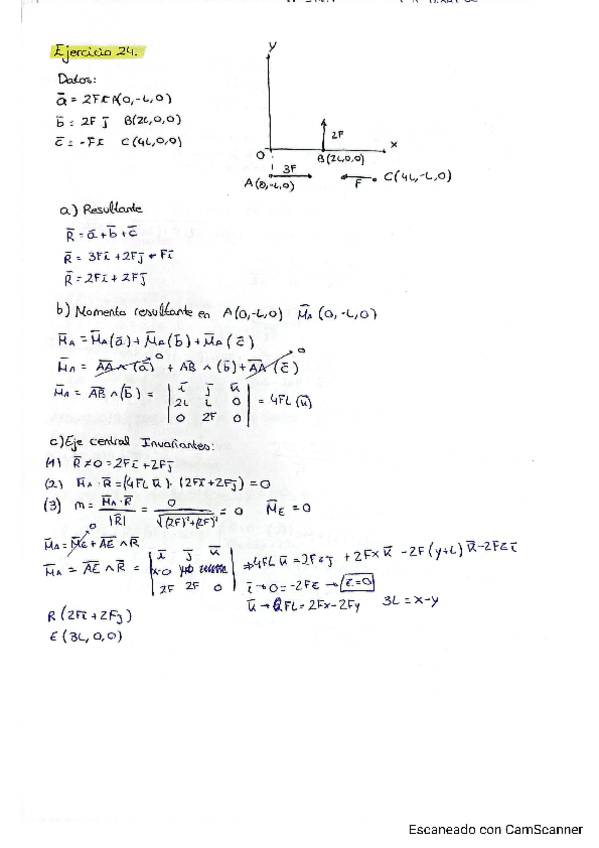 Ejercicio 24.
Datos:
ā = 2Fī A(0,-L,0)
b̄ = 2F j̄ B(2L,0,0)
c̄ = -Fī C(4L,0,0)
y
2F
x
O
B(2L,0,0)
3F
A(0,-L,0)
F
C(4L,-L,0)
a) Resultante
R̄ = ā+b̄+c̄
R̄ = 3Fī +2Fj̄ - Fī
R̄ = 2Fī + 2Fj̄
b) Momento resultante en A(0,-L,0) M̄A (0,-L,0)
M̄A = M̄A(ā)+M̄A(b̄)+M̄A(c̄)
M̄A = AA ∧ (ā) 0 + AB ∧ (b̄) + AA (c̄) 0
M̄A = AB ∧(b̄) = | ī j̄ ū | = 4FL(ū)
2L L 0
0 2F 0
c) Eje central Invariantes:
(1) R̄ ≠ 0 = 2Fī + 2Fj̄
(2) M̄A · R̄ = (4FL ū) · (2Fī + 2Fj̄) = 0
(3) m = M̄A · R̄ / |R̄| = 0 / √(2F)²+(2F)² = 0 M̄E = 0
M̄A = M̄E 0 + AE ∧ R̄
M̄A = AE ∧ R̄ = | ī j̄ ū | ⇒ 4FL ū = 2Fz j̄ + 2Fx ū - 2F(y+L) ū - 2Fz ī
x-0
2F 2F 0
ī → 0 = -2Fz → z=0
ū → FL = 2Fx - 2Fy 3L = x-y
R (2Fī + 2Fj̄)
E (3L, 0, 0)
Escaneado con CamScanner